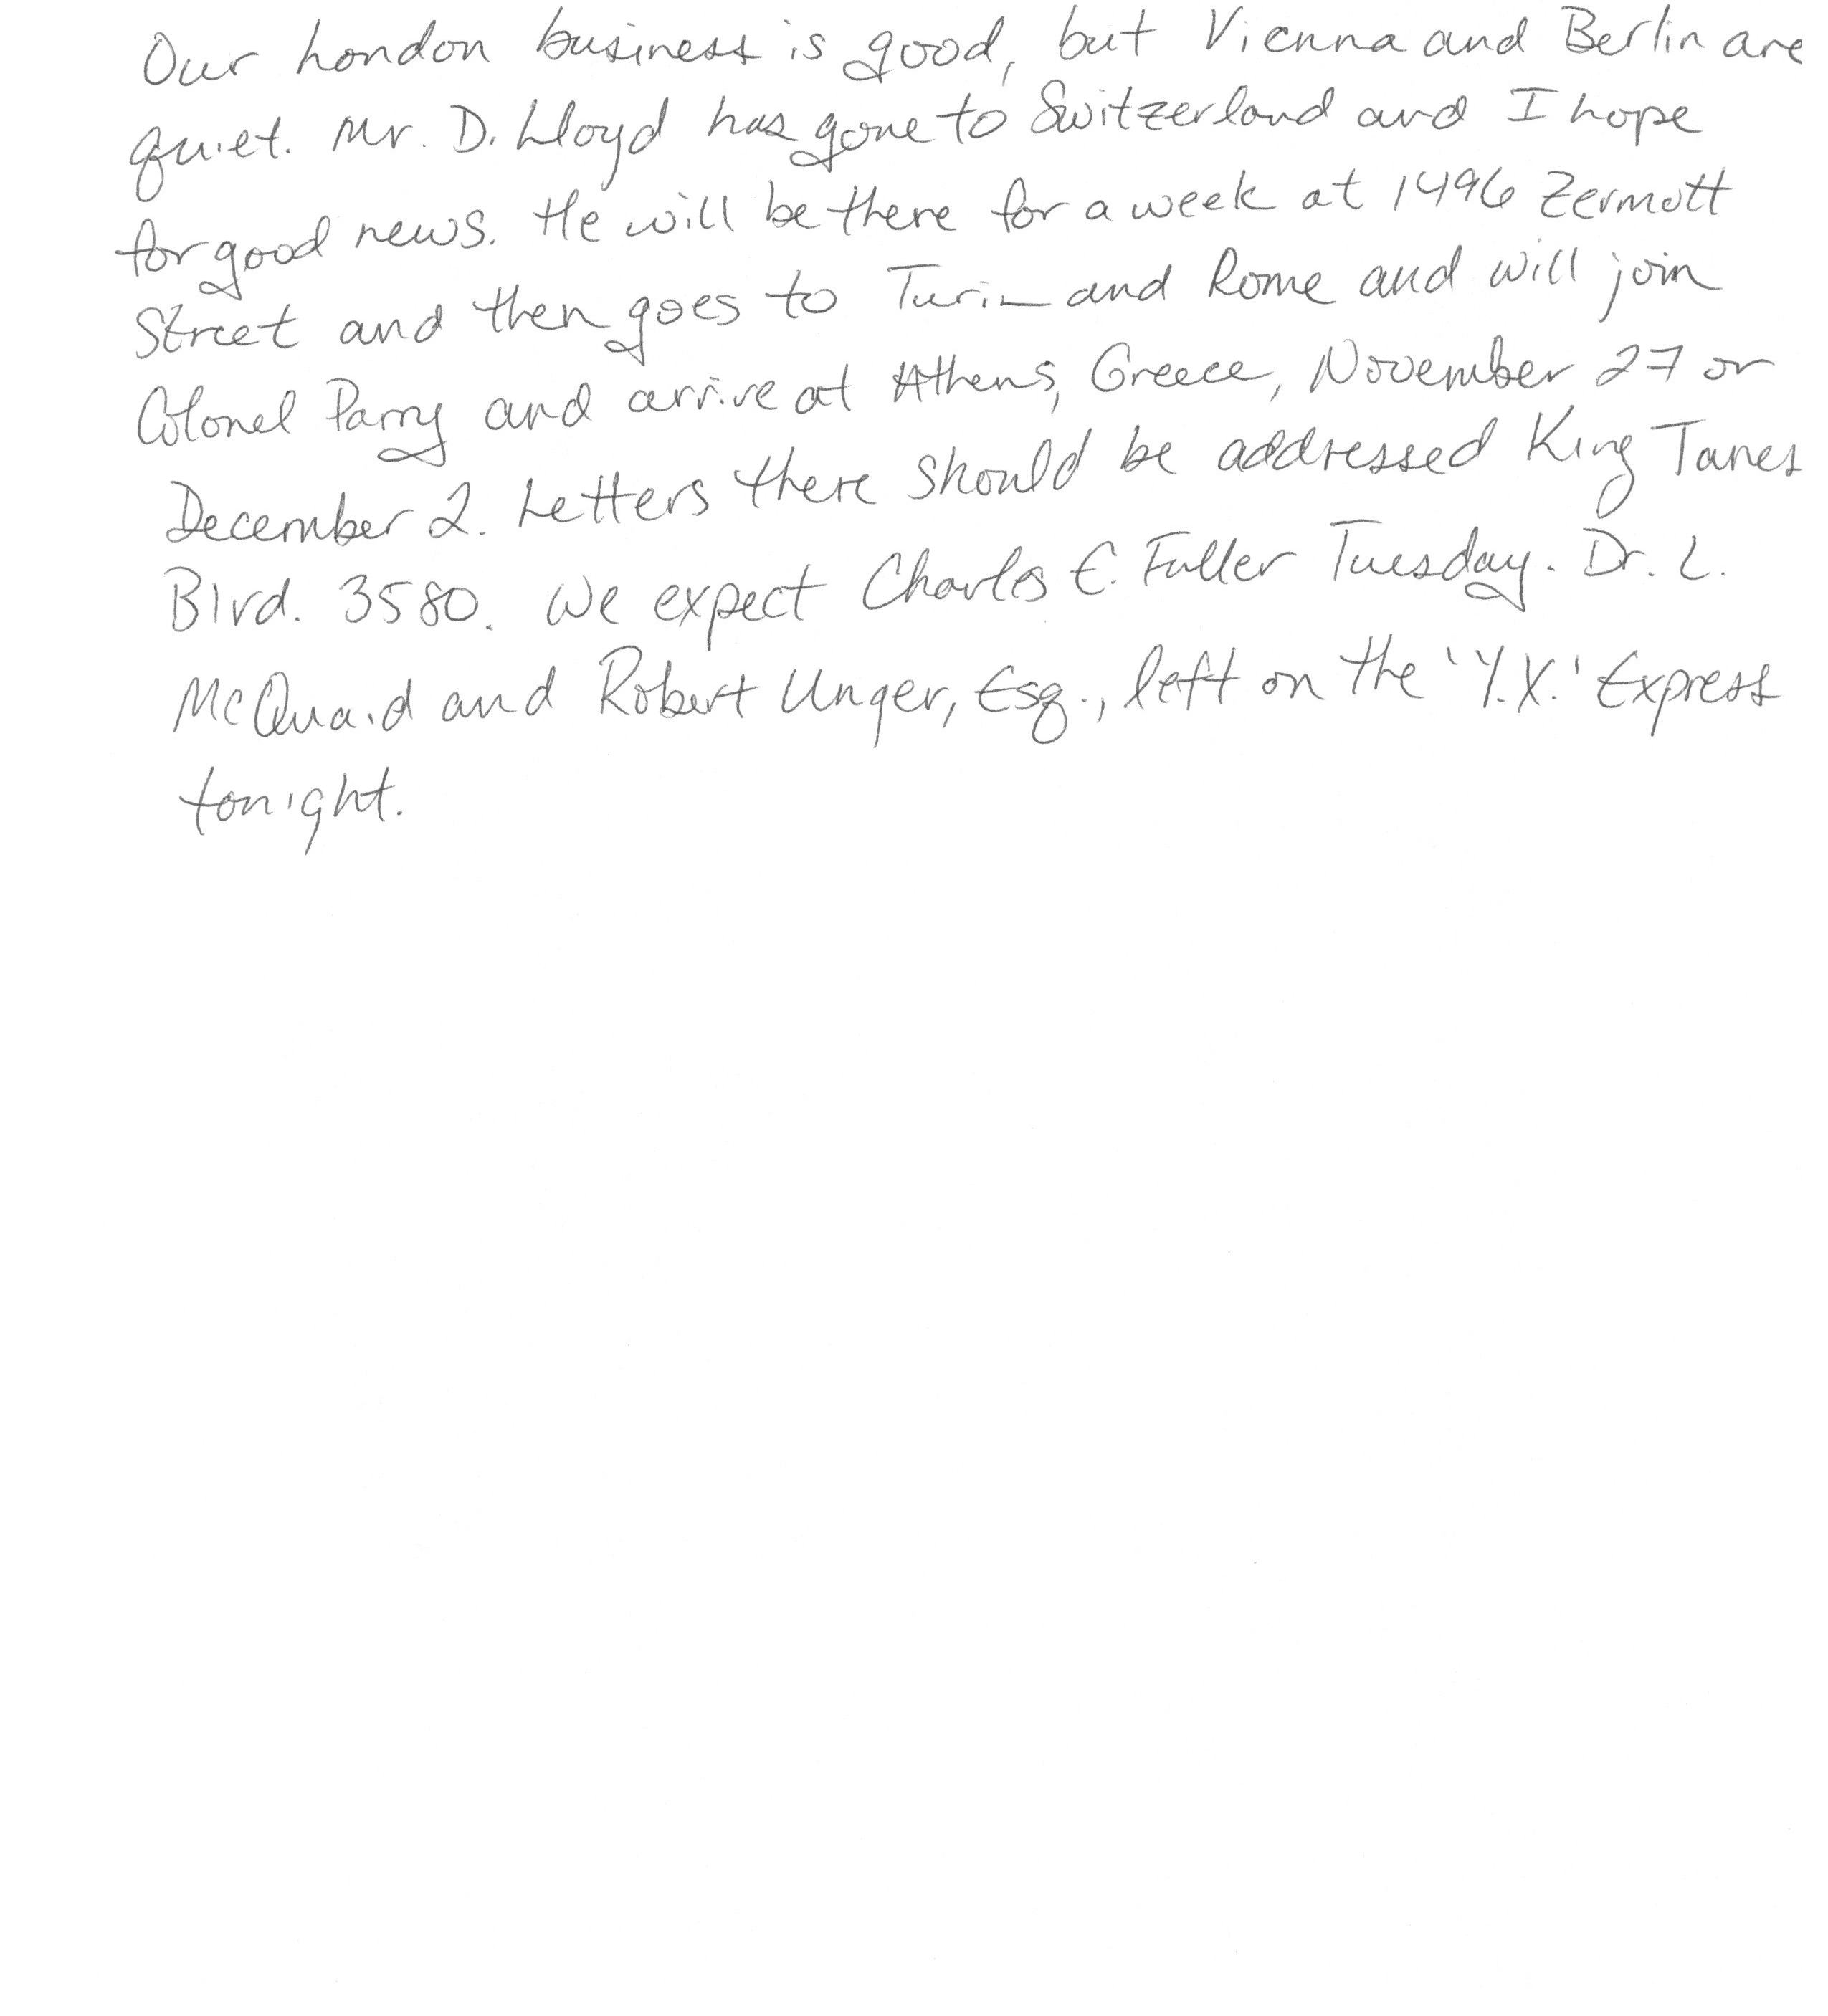 Our London business is good, but Vienna and Berlin are
quiet. Mr. D. Lloyd has gone to Switzerland and I hope
for good news. He will be there for a week at 1496 Zermott
Street and then goes to Turin and Rome and will join
Colonel Parry and arrive at Athens, Greece, November 27 or
December 2. Letters there should be addressed King Tames
Blvd. 3580. We expect Charles E. Fuller Tuesday. Dr. L.
McQuaid and Robert Unger, Esq., left on the 'Y.X.' Express
tonight.